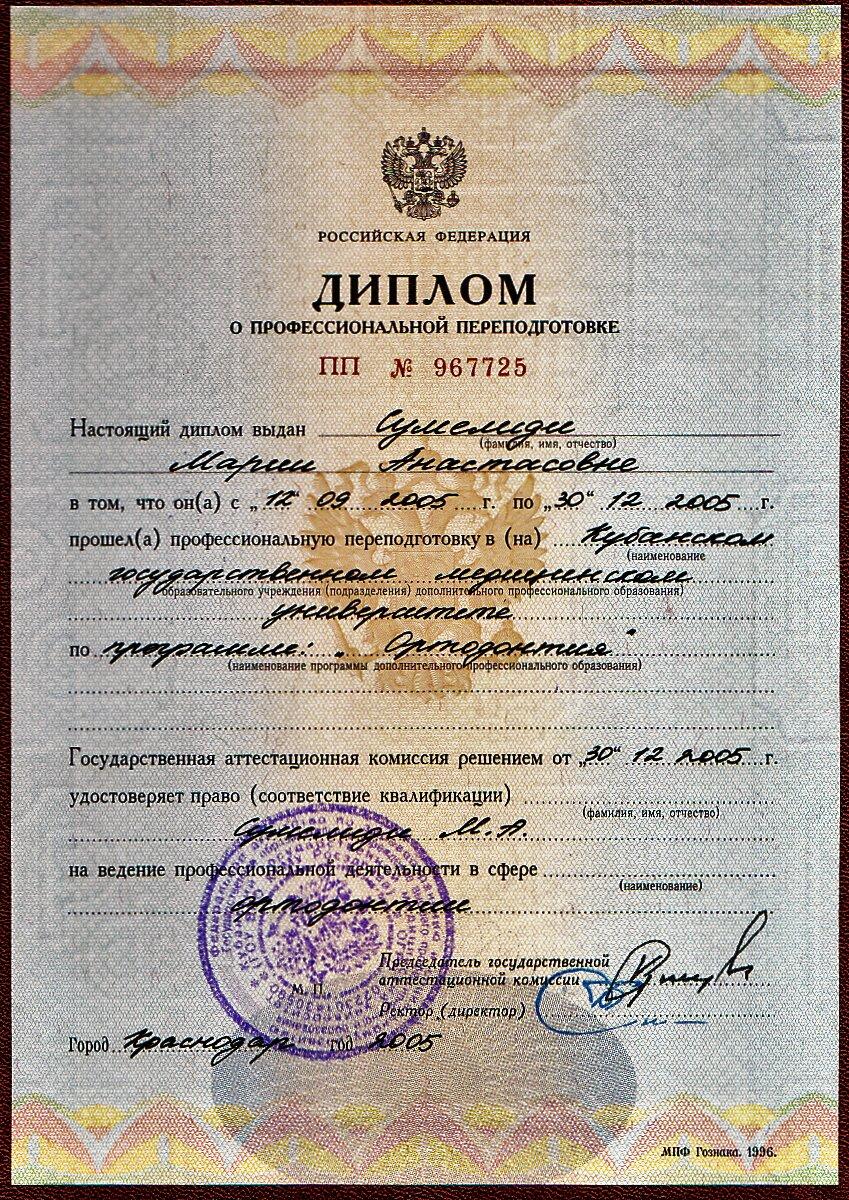 РОССИЙСКАЯ ФЕДЕРАЦИЯ
ДИПЛОМ
О ПРОФЕССИОНАЛЬНОЙ ПЕРЕПОДГОТОВКЕ
ПП № 967725
Настоящий диплом выдан Сумелиди
(фамилия, имя, отчество)
Марии Анастасовне
в том, что он(а) с „12“ 09 2005 г. по „30“ 12 2005 г.
прошел(а) профессиональную переподготовку в (на) Кубанском
(наименование
государственном медицинском
образовательного учреждения (подразделения) дополнительного профессионального образования)
университете
по программе: „Ортодонтия“
(наименование программы дополнительного профессионального образования)
Государственная аттестационная комиссия решением от „30“ 12 2005 г.
удостоверяет право (соответствие квалификации)
(фамилия, имя, отчество)
Сумелиди М.А.
на ведение профессиональной деятельности в сфере
(наименование)
ортодонтии
Председатель государственной
аттестационной комиссии
М. П.
Ректор (директор)
Город Краснодар год 2005
МПФ Гознака. 1996.